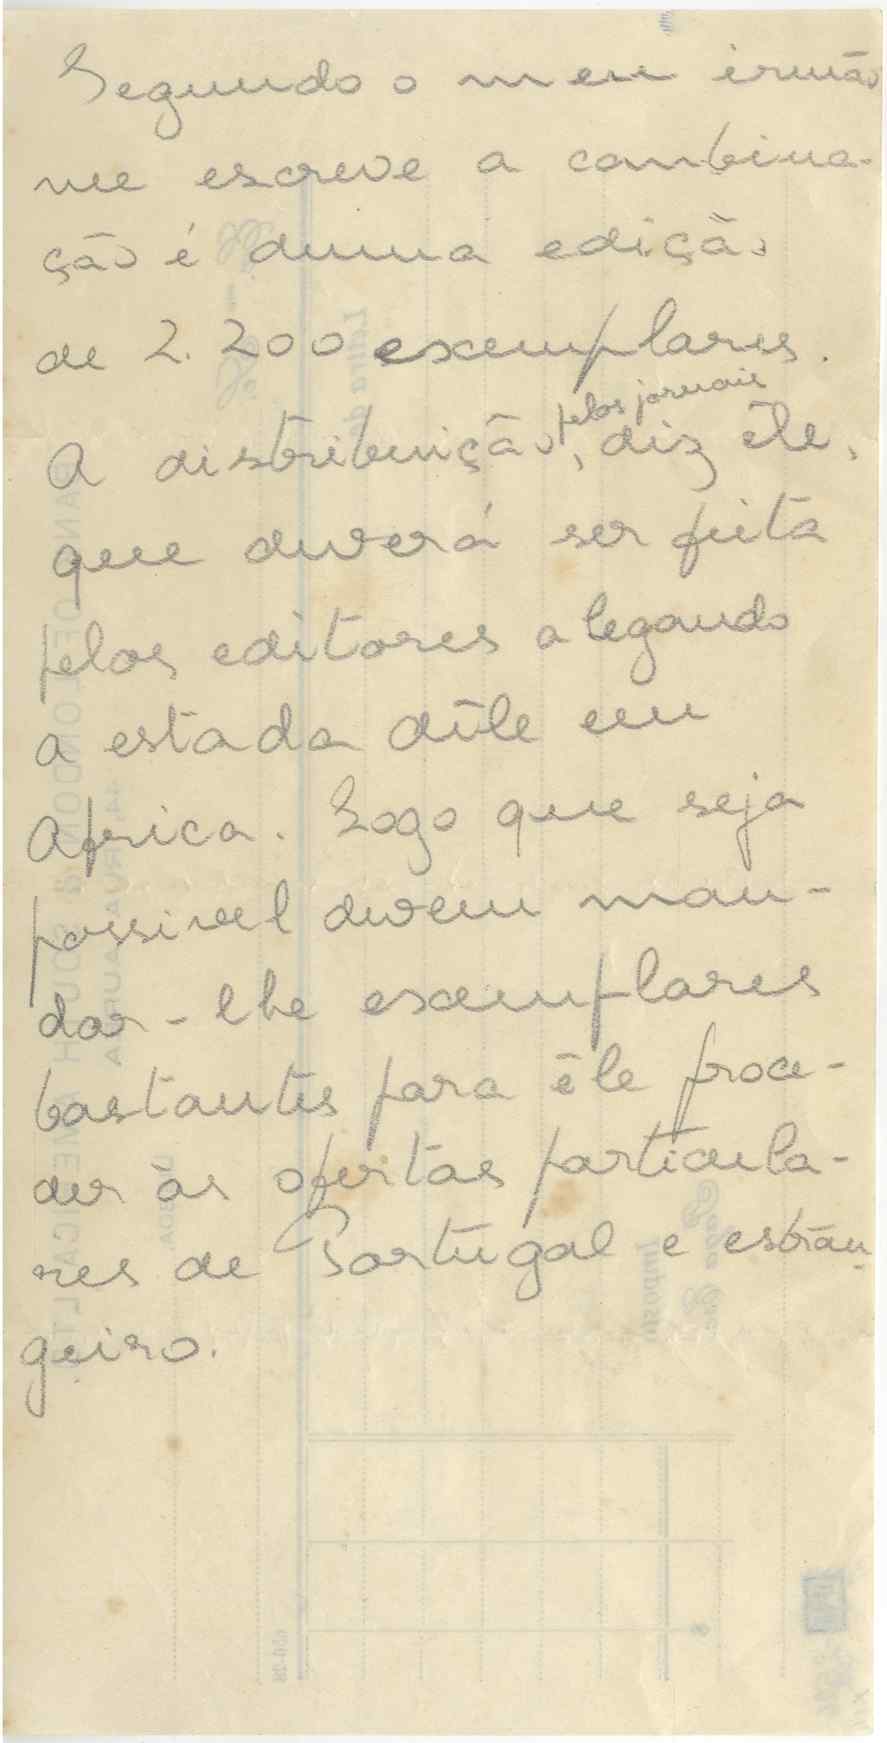 Segundo o meu irmão
me escreve a combina-
ção é duma edição
de 2.200 exemplares.
A distribuição pelos jornais, diz êle,
que deverá ser feita
pelos editores alegando
a estada dêle em
Africa. Logo que seja
possivel devem man-
dar-lhe exemplares
bastantes para êle proce-
der às ofertas particula-
res de Portugal e estran-
geiro.
BANK OF LONDON & SOUTH AMERICA LTD
LISBOA